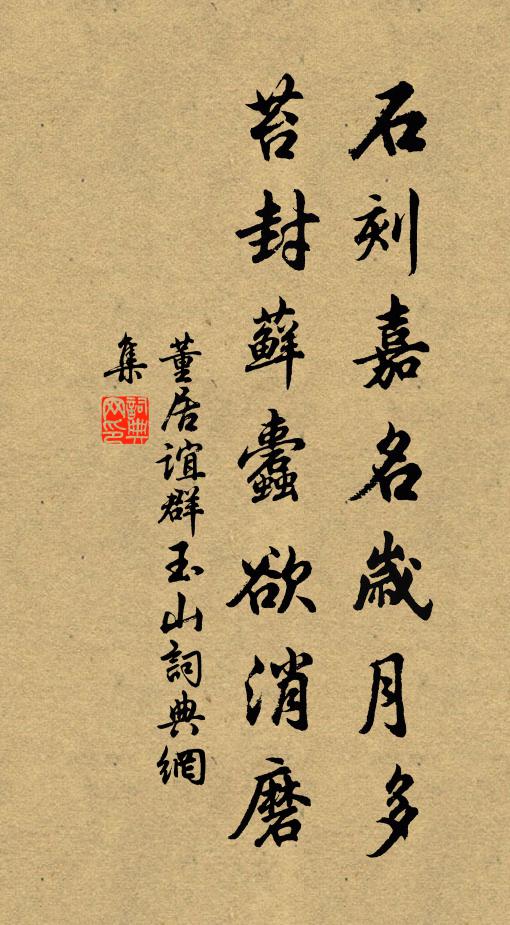 石刻嘉名歲月多
苔封蘚蠹欲消磨
董居誼群玉山詞典網
集
詞典網印